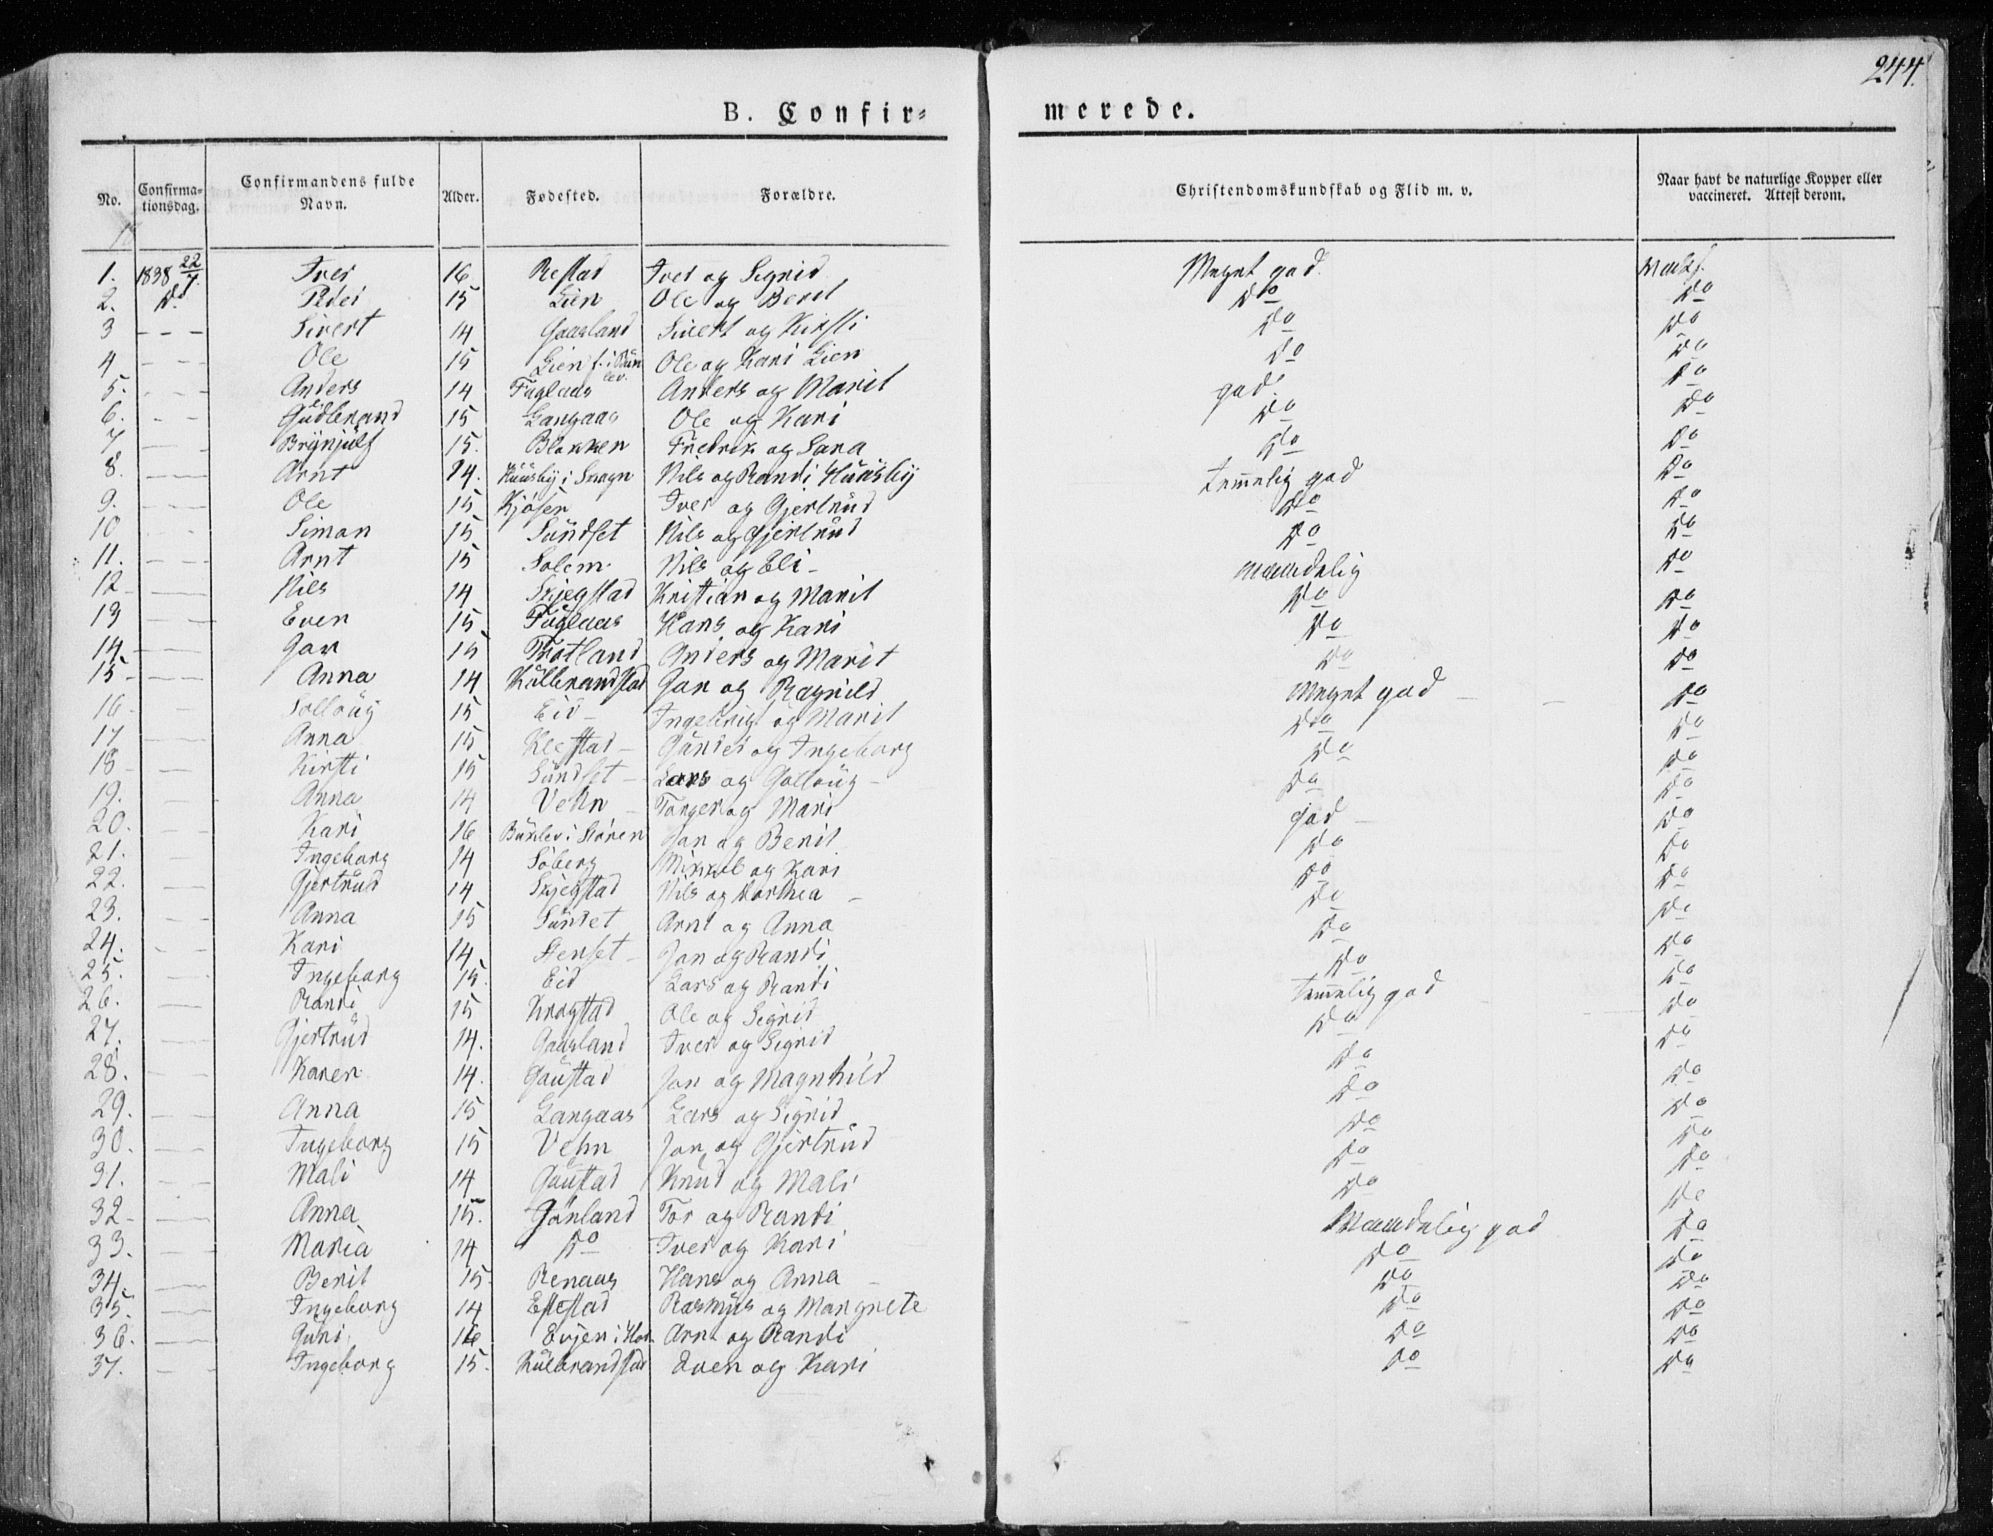 244.
B. Confir= merede.
No. Confirma-tionsdag. Confirmandens fulde Navn. Alder. Fødested. Forældre. Christendomskundskab og Flid m. v. Naar havt de naturlige Kopper eller vaccineret. Attest derom.
1. 1838 22/7. Iver 16 Restad Iver og Sigrid Meget god
2. Do Peder 15 Lien Ole og Berit Do Do
3 - - - Sivert 14 Gaasland Sivert og Kirsti Do Do
4 - - - Ole 15 Lien f. i Ole og Kari Lien Do Do
5. - - - Anders 14 Fuglaas Anders og Marit god. Do
6. - - Gudbrand 15 Langaas Ole og Kari Do Do
7 - - Brynjulf 15. Blokken Fredrik og Sara Do Do
8. - - Arnt 14. Huusby i Nils og Randi Huusby temmelig god Do
9. - - Ole 15 Kjøsen Iver og Gjertrud Do Do
10 - - Simon 15 Sundset Nils og Gjertrud Do Do
11. - - Arnt 15 Solem Nils og Eli - maadelig Do
12 - - Nils 14 Skjegstad Kristian og Marit Do Do
13 - - Even 15 Fuglaas Hans og Kari Do Do
14 - - Jon 15 Anders og Marit Do Do
15 - - Anna 14 Kulbrandstad Jon og Ragnild Meget god - Do
16 - - Sollaug 15 Eid - Ingebrigt og Marit Do Do
17 - - Anna 15 Klestad - Gunder og Ingeborg Do Do
18 - - Kirsti 15 Sundset - Lars og Gollaug - Do Do
19. - - Anna 14 Vehn - Torger og Mari god - Do
20. - - Kari 16 i Støren Jon og Berit Do Do
21. - Ingeborg 14 Søberg Mikkel og Kari Do Do
22. - - Gjertrud 14 Skjegstad Nils og Dorthea - Do Do
23. - - Anna 15 Sundet Arnt og Anna Do Do
24. - - Kari 14 Stenset - Jon og Randi Do Do
25. - - Ingeborg 15. Eid Lars og Randi temmelig god Do
26. - - Randi 15 Krogstad Ole og Sigrid Do Do
27. - - Gjertrud 14. Gaasland Iver og Sigrid Do Do
28. - - Karen 14. Gaustad Jon og Magnhild Do Do
29. - - Anna 15 Langaas Lars og Sigrid Do Do
30. - - Ingeborg 15 Vehn Jon og Gjertrud Do Do
31. - - Mali 14 Gaustad Knud og Mali Do Do
32 - - Anna 15. Gønland Tor og Randi Maadelig god Do
33. - - Maria 14 Do Iver og Kari Do Do
34. - - Berit 15. Renaas Hans og Anna - Do Do
35. - - Ingeborg 14 Rasmus og Margrete Do Do
36. - - Guri 16 Evjen i Arnt og Randi Do Do
37. - - Ingeborg 15. Kulbrandstad Even og Kari Do Do